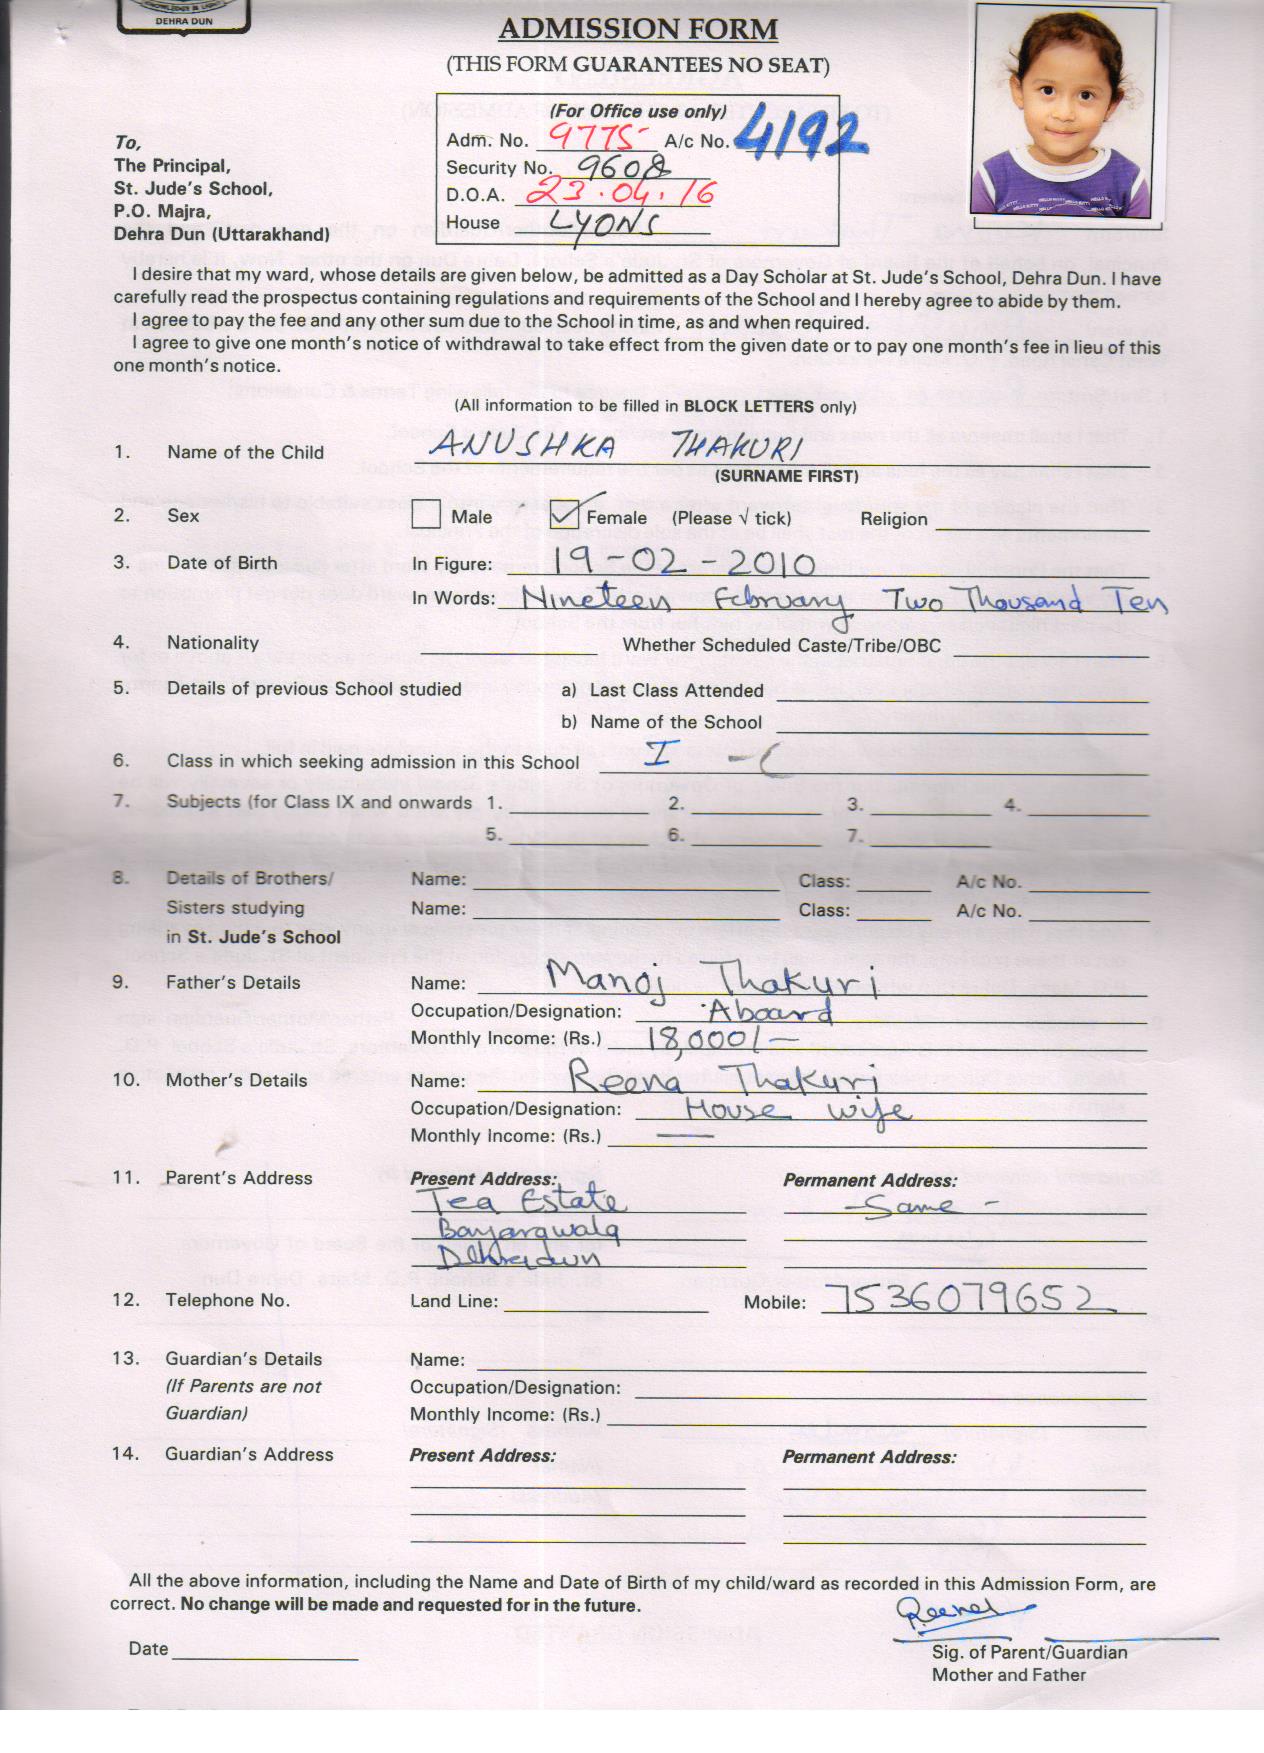 DEHRA DUN
ADMISSION FORM
(THIS FORM GUARANTEES NO SEAT)
(For Office use only)
Adm. No. 9775 A/c No. 4192
Security No. 9608
D.O.A. 23.04.16
House LYONS
To,
The Principal,
St. Jude's School,
P.O. Majra,
Dehra Dun (Uttarakhand)
I desire that my ward, whose details are given below, be admitted as a Day Scholar at St. Jude's School, Dehra Dun. I have
carefully read the prospectus containing regulations and requirements of the School and I hereby agree to abide by them.
I agree to pay the fee and any other sum due to the School in time, as and when required.
I agree to give one month's notice of withdrawal to take effect from the given date or to pay one month's fee in lieu of this
one month's notice.
(All information to be filled in BLOCK LETTERS only)
1. Name of the Child ANUSHKA THAKURI
(SURNAME FIRST)
2. Sex Male Female (Please √ tick) Religion
3. Date of Birth In Figure: 19-02-2010
In Words: Nineteen February Two Thousand Ten
4. Nationality Whether Scheduled Caste/Tribe/OBC
5. Details of previous School studied a) Last Class Attended
b) Name of the School
6. Class in which seeking admission in this School I - C
7. Subjects (for Class IX and onwards 1. 2. 3. 4.
5. 6. 7.
8. Details of Brothers/ Name: Class: A/c No.
Sisters studying Name: Class: A/c No.
in St. Jude's School
9. Father's Details Name: Manoj Thakuri
Occupation/Designation: Aboard
Monthly Income: (Rs.) 18,000/-
10. Mother's Details Name: Reena Thakuri
Occupation/Designation: House wife
Monthly Income: (Rs.) —
11. Parent's Address Present Address: Permanent Address:
Tea Estate - Same -
Banjarawala
Dehradun
12. Telephone No. Land Line: Mobile: 7536079652
13. Guardian's Details Name:
(If Parents are not Occupation/Designation:
Guardian) Monthly Income: (Rs.)
14. Guardian's Address Present Address: Permanent Address:
All the above information, including the Name and Date of Birth of my child/ward as recorded in this Admission Form, are
correct. No change will be made and requested for in the future.
Reena
Date Sig. of Parent/Guardian
Mother and Father